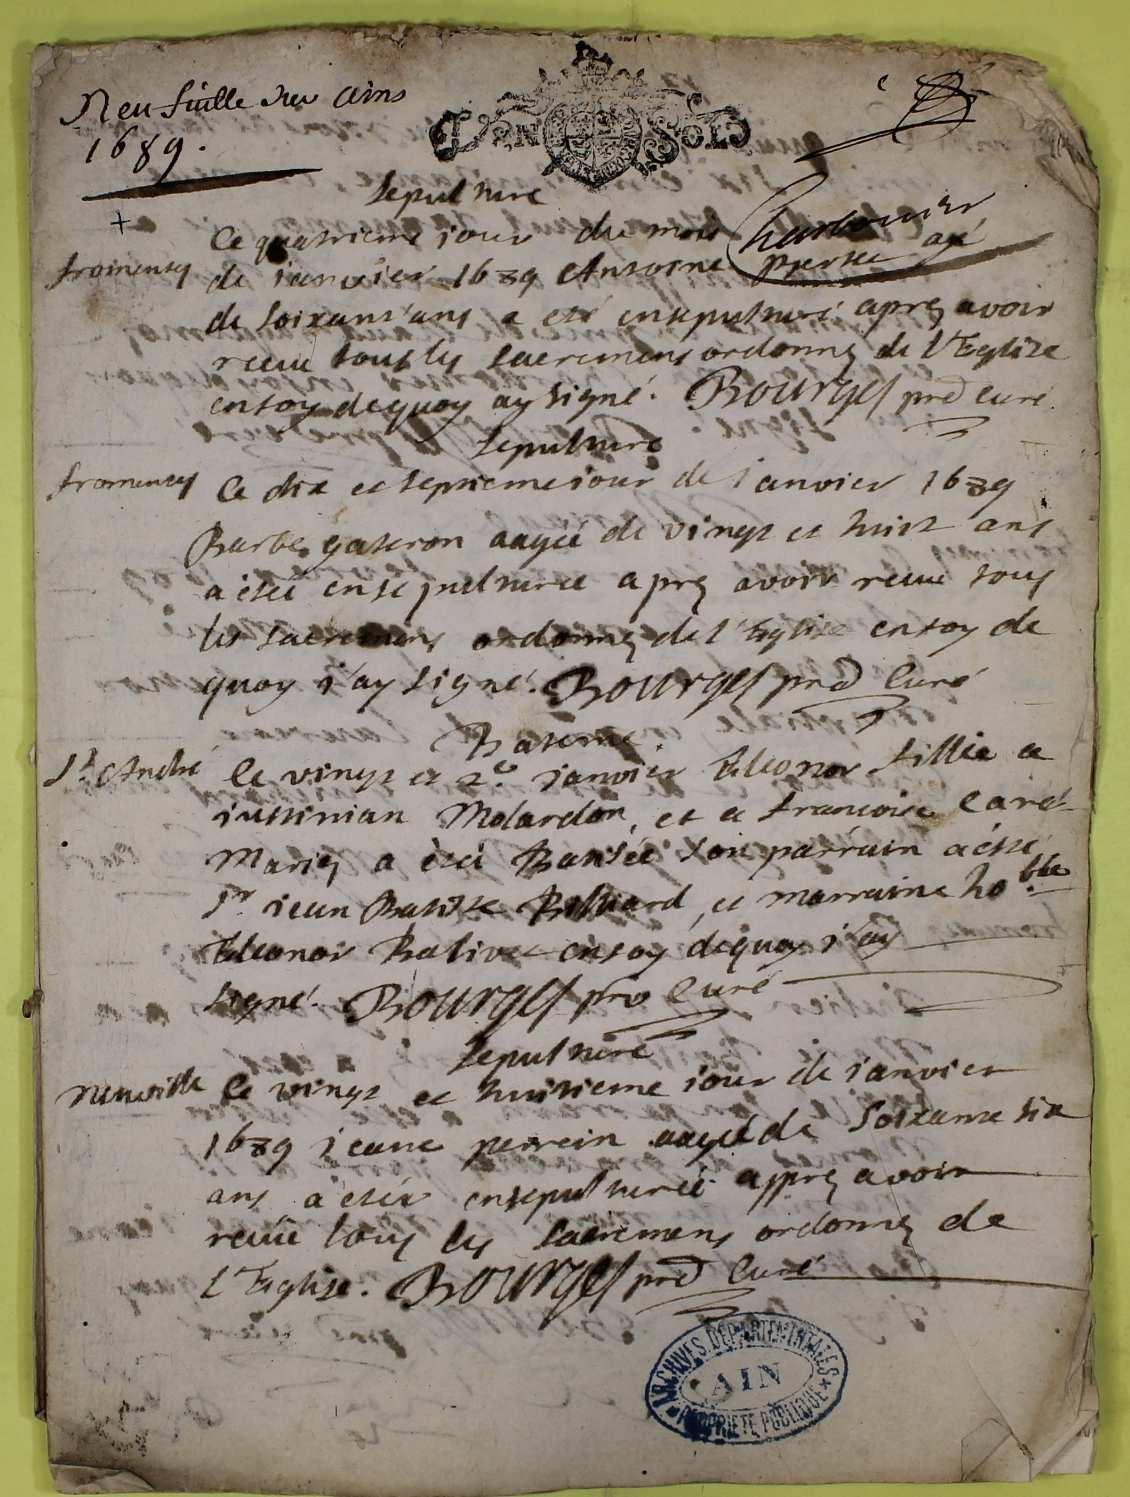 Neufville sur Ains
1689.
Sepulture
Ce quatrieme jour du mois Charbonier
fromentes de ianvier 1689 Antoine pierre agé
de soixant'ans a eté ensepulturé aprez avoir
receu tous les sacremens ordonnez de l'Eglize
en foy dequoy ay signé. Bourges pred curé
Sepulture
fromentes Ce dix et septieme iour de ianvier 1689
Barbe gaseron aagée de vingt et huist ans
a esté ensepulturee aprez avoir receu tous
les sacremens ordonnez de l'Eglise en foy de
quoy i'ay signé. Bourges pred Curé
Bateme
St. André Ce vingt et 2e. janvier Eleonor fillie a
iustinian Molardon, et a francoise Caret
Mariez a èsté Batisée son parrain a ésté
Sr. iean Batiste Billiard, et marraine hoble
Eleonor Balivet en foy dequoy i'ay
signé. Bourges pre Curé
Sepulture
neuville Ce vingt et huitieme iour de ianvier
1689 ieane perrein aagée de soixante six
ans a èsté ensepulturée apprez avoir
receue tous les sacremens ordonnez de
l'Eglise. Bourges pred Curé
ARCHIVES DEPARTEMENTALES
AIN
PROPRIETE PUBLIQUE